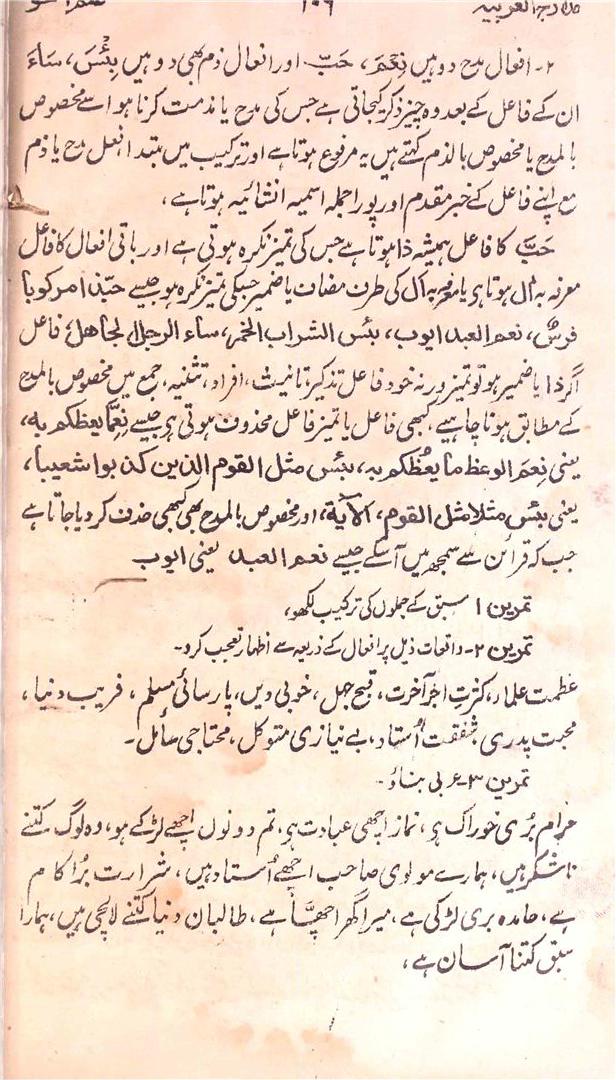 ۱۰۶
۲۔ افعال مدح دو ہیں نِعْمَ، حَبَّ اور افعال ذم بھی دو ہیں بِئْسَ، سَاءَ
ان کے فاعل کے بعد وہ چیز ذکر کیجاتی ہے جس کی مدح یا مذمت کرنا ہو اسے مخصوص
بالمدح یا مخصوص بالذم کہتے ہیں یہ مرفوع ہوتا ہے اور ترکیب میں مبتدا فعل مدح یا ذم
مع اپنے فاعل کے خبر مقدم اور پورا جملہ اسمیہ انشائیہ ہوتا ہے،
حَبَّ کا فاعل ہمیشہ ذا ہوتا ہے جس کی تمیز نکرہ ہوتی ہے اور باقی افعال کا فاعل
معرفہ بہ ال ہوتا ہی یا معرفہ بہ ال کی طرف مضاف یا ضمیر جسکی تمیز نکرہ ہو جیسے حبّذا مرکوبا
فرسٌ، نعم العبد ایوب، بئس الشراب الخمر، ساء الرجل الجاهل، فاعل
اگر ذا یا ضمیر ہو تو تمیز ورنہ خود فاعل تذکیر، تانیث، افراد، تثنیہ، جمع میں مخصوص بالمدح
کے مطابق ہونا چاہیے، کبھی فاعل یا تمیز فاعل محذوف ہوتی ہی جیسے نِعِمَّا یعظکم به،
یعنی نِعمَ الوعظ ما یعظُکم به، بئس مثل القوم الذین کذبوا شعیبا،
یعنی بئس مثلا مثل القوم، الآیة، اور مخصوص بالمدح بھی کبھی حذف کر دیا جاتا ہے
جب کہ قرائن سے سمجھ میں آسکے جیسے نعم العبد یعنی ایوب
تمرین ۱ سبق کے جملوں کی ترکیب لکھو،
تمرین ۲۔ واقعات ذیل پر افعال کے ذریعہ سے اظہار تعجب کرو۔
عظمت علماء، کثرتِ اجر آخرت، قبح جہل، خوبی دیں، پارسائی مسلم، فریب دنیا،
محبت پدری، شفقت اُستاد، بے نیازی متوکل، محتاجی سائل۔
تمرین ۳۔ عربی بناؤ۔
حرام بُری خوراک ہی، نماز اچھی عبادت ہی، تم دونوں اچھے لڑکے ہو، وہ لوگ کتنے
ناشکر ہیں، ہمارے مولوی صاحب اچھے اُستاد ہیں، شرارت بُرا کام
ہے، حامدہ بری لڑکی ہے، میرا گھر اچھا ہے، طالبان دنیا کتنے لالچی ہیں، ہمارا
سبق کتنا آسان ہے،